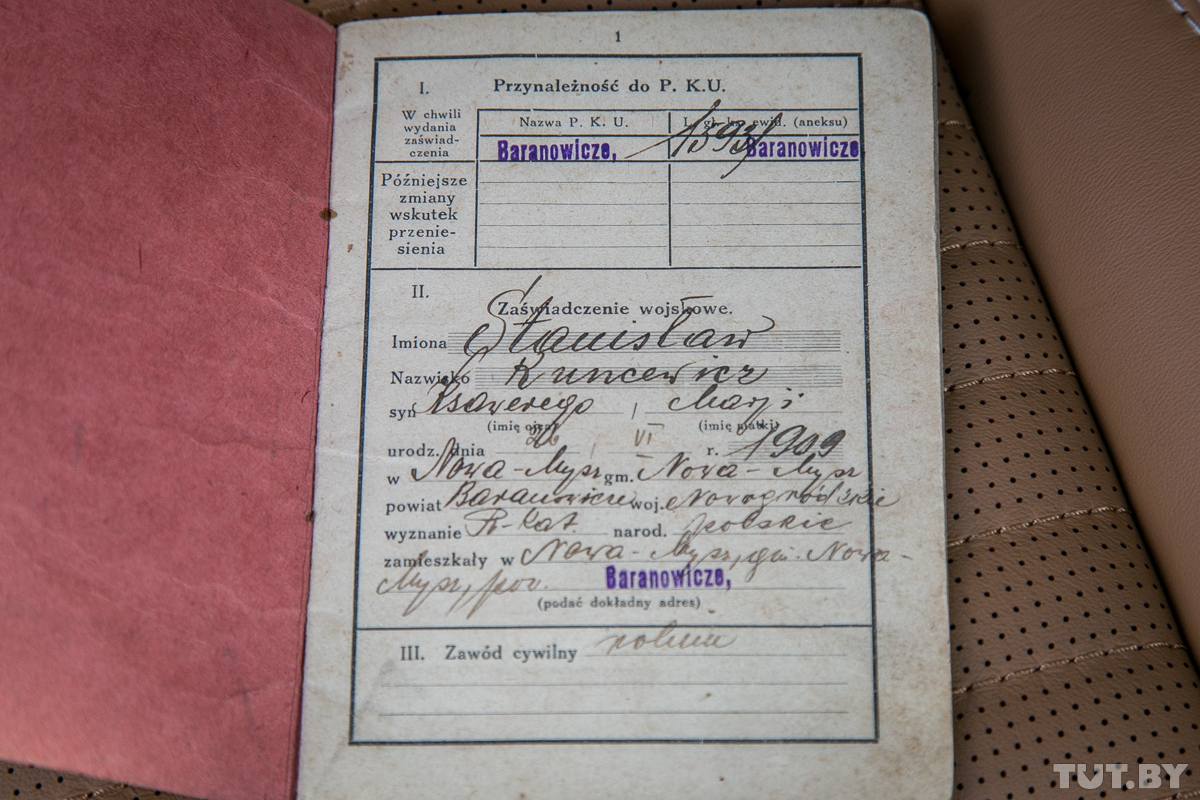 1
I. Przynależność do P. K. U.
W chwili wydania zaświad-czenia
Nazwa P. K. U. L. gł. ks. ewid. (aneksu)
Baranowicze, 1393/ Baranowicze
Późniejsze
zmiany
wskutek
przenie-
sienia
II.
Zaświadczenie wojskowe.
Imiona Stanisław
Nazwisko Kuncewicz
syn Ksawerego / Marji
(imię ojca) (imię matki)
urodz. dnia VI r. 1909
w Nowa-Mysz gm. Nowa-Mysz
powiat Baranowicze woj. Nowogródzkie
wyznanie R-Kat. narod. polskie
zamieszkały w Nowa-Mysz, gm. Nowa-
Mysz, pow. Baranowicze,
(podać dokładny adres)
III. Zawód cywilny rolnik
TUT.BY